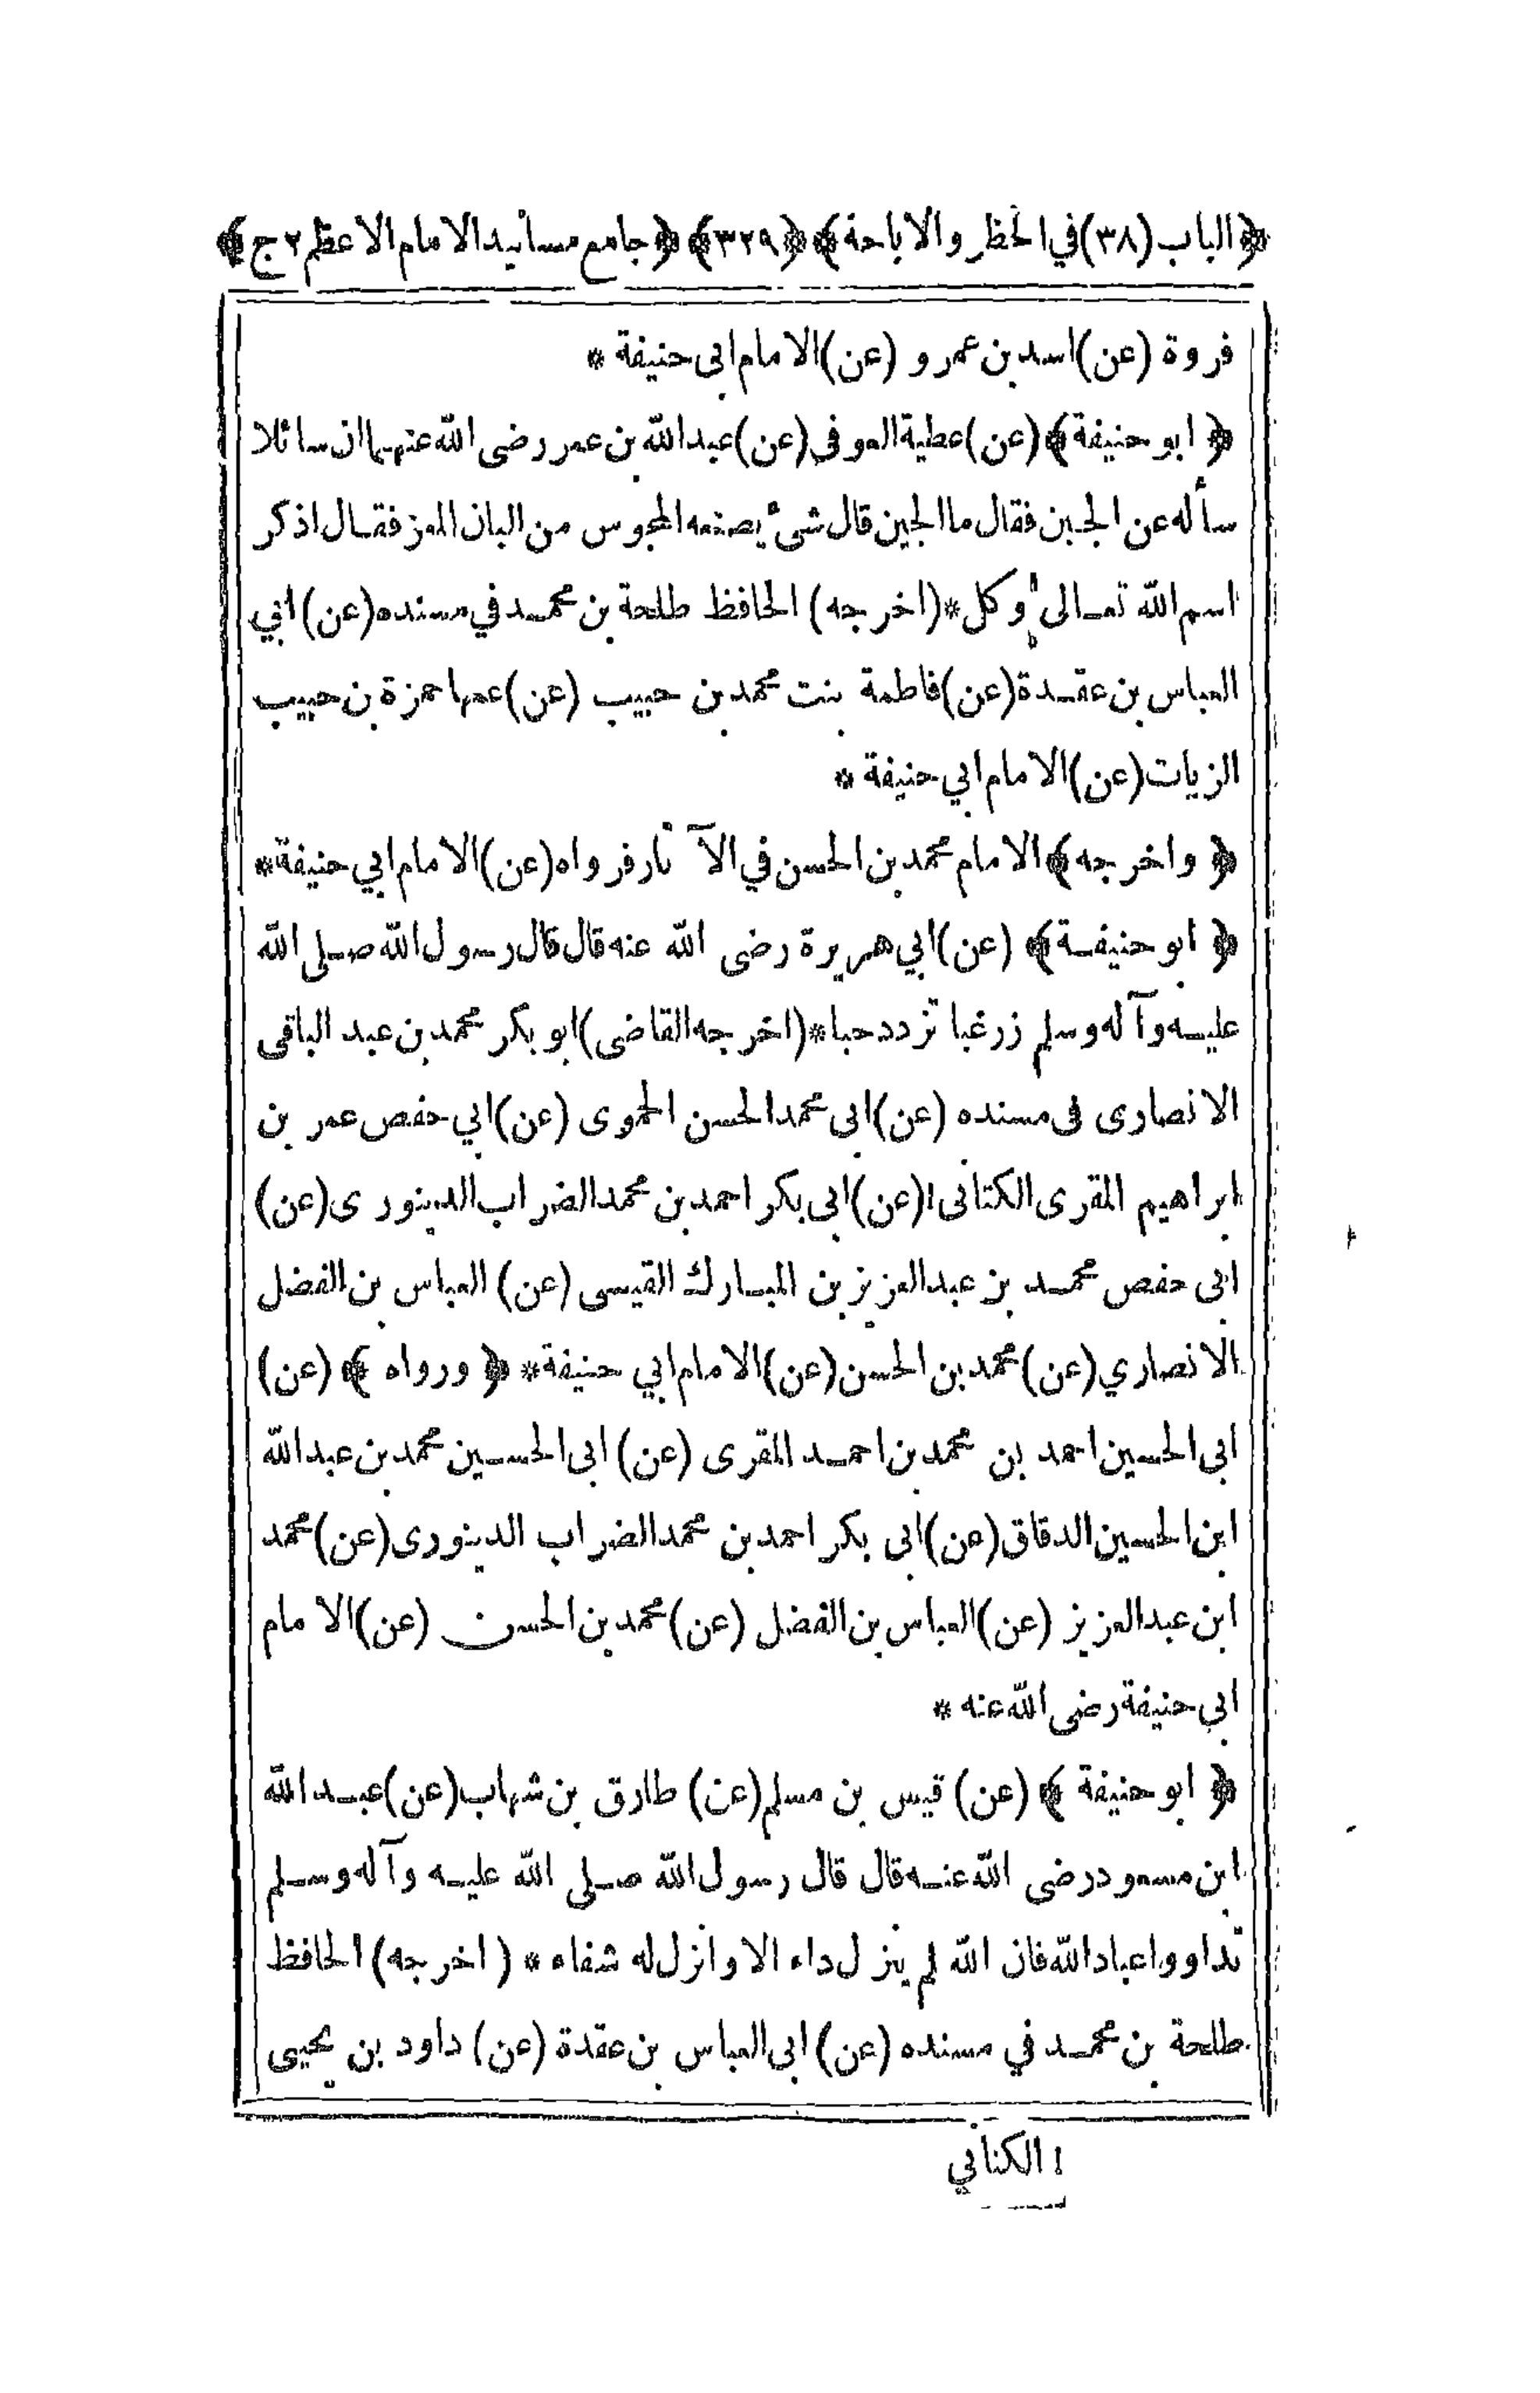 ﴿الباب (٣٨) في الحظر والاباحة﴾ ﴿٣٢٩﴾ ﴿جامع مسانيد الامام الاعظم ٢ ج﴾
فروة (عن) اسد بن عمرو (عن) الامام ابى حنيفة *
﴿ ابو حنيفة ﴾ (عن) عطية العوفى (عن) عبد الله بن عمر رضى الله عنهما ان سائلا
سأله عن الجبن فقال ما الجبن قال شئ يصنعه المجوس من البان المعز فقال اذكر
اسم الله تعالى وكل * (اخرجه) الحافظ طلحة بن محمد في مسنده (عن) ابي
العباس بن عقدة (عن) فاطمة بنت محمد بن حبيب (عن) عمها حمزة بن حبيب
الزيات (عن) الامام ابي حنيفة *
﴿ واخرجه ﴾ الامام محمد بن الحسن في الآثار فرواه (عن) الامام ابي حنيفة *
﴿ ابو حنيفة ﴾ (عن) ابي هريرة رضى الله عنه قال قال رسول الله صلى الله
عليه وآله وسلم زرغبا تزدد حبا * (اخرجه القاضى) ابو بكر محمد بن عبد الباقى
الانصارى فى مسنده (عن) ابى محمد الحسن الحموى (عن) ابي حفص عمر بن
ابراهيم المقرى الكتانى ١ (عن) ابى بكر احمد بن محمد الضراب الدينورى (عن)
ابى حفص محمد بن عبد العزيز بن المبارك القيسى (عن) العباس بن الفضل
الانصاري (عن) محمد بن الحسن (عن) الامام ابي حنيفة * ﴿ ورواه ﴾ (عن)
ابى الحسين احمد بن محمد بن احمد المقرى (عن) ابى الحسين محمد بن عبد الله
ابن الحسين الدقاق (عن) ابى بكر احمد بن محمد الضراب الدينورى (عن) محمد
ابن عبد العزيز (عن) العباس بن الفضل (عن) محمد بن الحسن (عن) الامام
ابي حنيفة رضى الله عنه *
﴿ ابو حنيفة ﴾ (عن) قيس بن مسلم (عن) طارق بن شهاب (عن) عبد الله
ابن مسعود رضى الله عنه قال قال رسول الله صلى الله عليه وآله وسلم
تداووا عباد الله فان الله لم ينزل داء الا وانزل له شفاء * (اخرجه) الحافظ
طلحة بن محمد في مسنده (عن) ابى العباس بن عقدة (عن) داود بن يحيى
١ الكناني